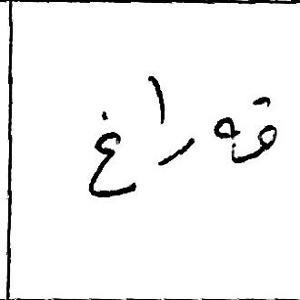 قەراغ